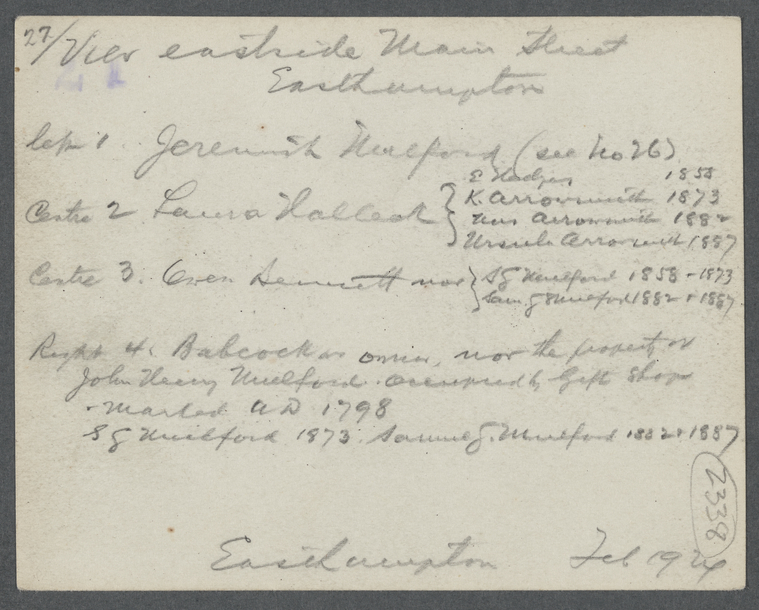 27/ View eastside Main Street
Easthampton
left 1 Jeremiah Mulford (see No 26)
E Hedges 1858
K. Arrowsmith 1873
Centre 2 Laura Halleck { Mrs Arrowsmith 1882
Ursula Arrowsmith 1887
Centre 3. Bennett now } S G Mulford 1858-1873
Sam. G Mulford 1882 + 1887
Right 4. Babcock as owner, now the property of
John Henry Mulford occupied by Gift Shop
- Marked AD 1798
S G Mulford 1873. Samuel G. Mulford 1882 + 1887
2338
Easthampton Feb 1924